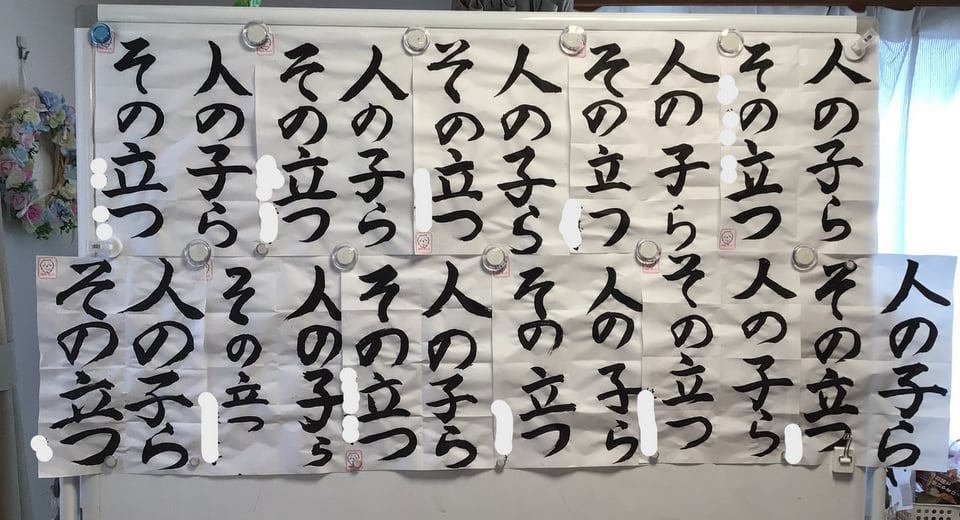 人の子ら
その立つ
人の子ら
その立つ
人の子ら
その立つ
人の子ら
その立つ
人の子ら
その立つ
人の子ら
その立つ
人の子ら
その立つ
人の子ら
その立つ
人の子ら
その立つ
人の子ら
その立つ
人の子ら
その立つ